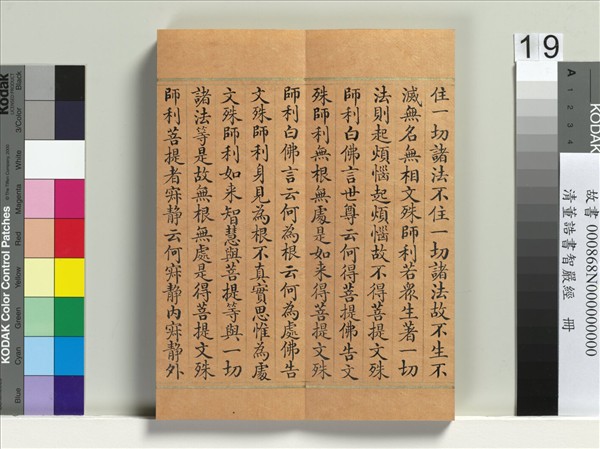 住一切諸法不住一切諸法故不生不
滅無名無相文殊師利若眾生著一切
法則起煩惱起煩惱故不得菩提文殊
師利白佛言世尊云何得菩提佛告文
殊師利無根無處是如来得菩提文殊
師利白佛言云何為根云何為處佛告
文殊師利身見為根不真實思惟為處
文殊師利如来智慧與菩提等與一切
諸法等是故無根無處是得菩提文殊
師利菩提者寂静云何寂静内寂静外
19
A 1 2 3 4
KODAK
故書 000868N000000000
清董誥書智嚴經 冊
Kodak
KODAK Color Control Patches
Blue
Cyan
Green
Yellow
Red
Magenta
White
3/Color
Black